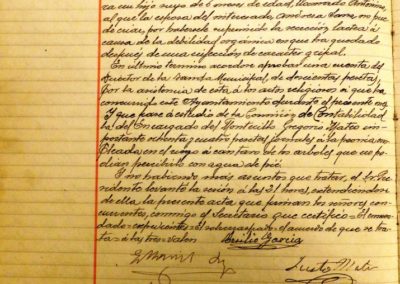 ra un hijo suyo de 6 meses de edad, llamado Antonio,
al que la esposa del interesado Ambrosia Torre no pue-
de criar, por habersele suprimido la secrecion lactea á
causa de la debilidad orgánica en que ha quedado
despues de una infeccion de caracter gripal.
En ultimo termino acordose aprobar una cuenta del
Director de la Banda Municipal, de doscientas pesetas,
por la asistencia de esta á los actos religiosos á que ha
concurrido este Ayuntamiento durante el presente año
Y que pase á estudio de la Comision de Contabilidad
la del Encargado del Gregorio Mateo im-
portante ochenta y cuatro pesetas, jornales á la persona em-
pleada en el riego á cantaro de los arboles que no po-
dian percibirlo con agua de pié.
Y no habiendo mas asuntos que tratar, el Sr. Pre-
sidente levantó la sesión á las 21 horas, extendiendose
de ella la presente acta que firman los señores con-
currentes, conmigo el Secretario que certifico = El enmen-
dado = = El sobreraspado = el acuerdo de que se tra-
ta = á las tres = valen
Emilio Garcia
Justo